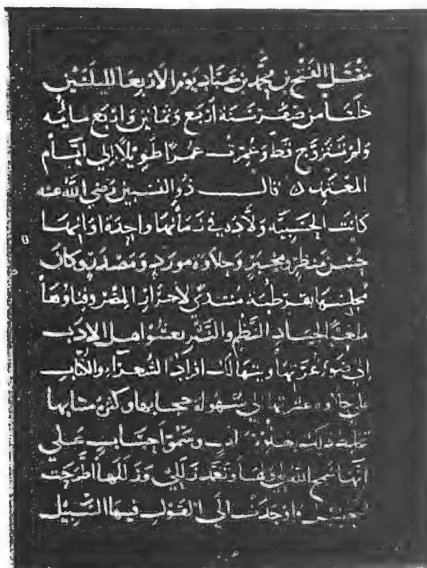 مقتل الفتح بن محمد بن عباد يوم الاربعا لليلتين
خلتا من صفر سنة اربع وثمانين واربع مائه
ولم تتزوج قط وعمرت عمرا طويلا الى ايام
المعتمد ن قال ذو النسبين رضي الله عنه
كانت الحسيبه ولاده في زمانها واحدة اوانها
حسن منظر ومخبر وحلاوه مورد ومصدر وكان
مجلسها بقرطبة منتدى لاحرار المصر وفناوها
ملعبا لجياد النظم والنثر يعشوا اهل الادب
الى ضوء غرتها ويتهالك افراد الشعراء والكتاب
على حلاوه عشرتها الى سهوله حجابها وكثره منتابها
تخلط ذلك اثواب على
انها سمح الله لها وتغمد زللها اطرحت
التحصيل واوجدت الى القول فيها السبيل